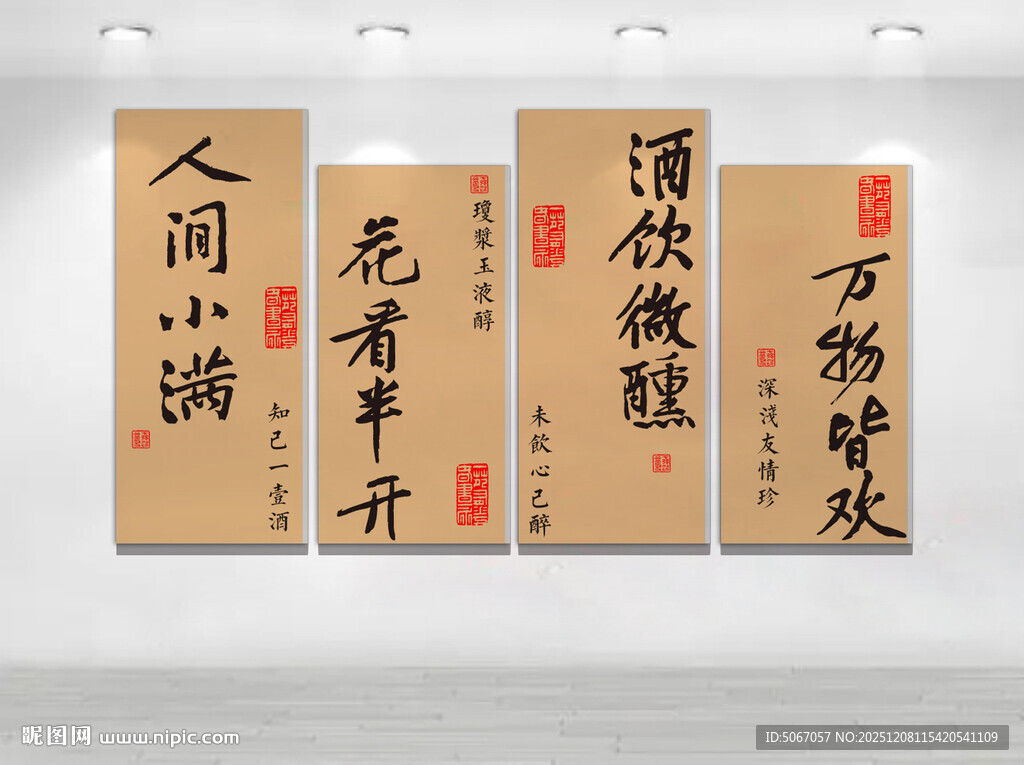 人间小满
知己一壹酒
花看半开
瓊漿玉液醇
酒饮微醺
未飲心已醉
万物皆欢
深淺友情珍
昵图网 www.nipic.com
ID:5067057 NO:20251208115420541109